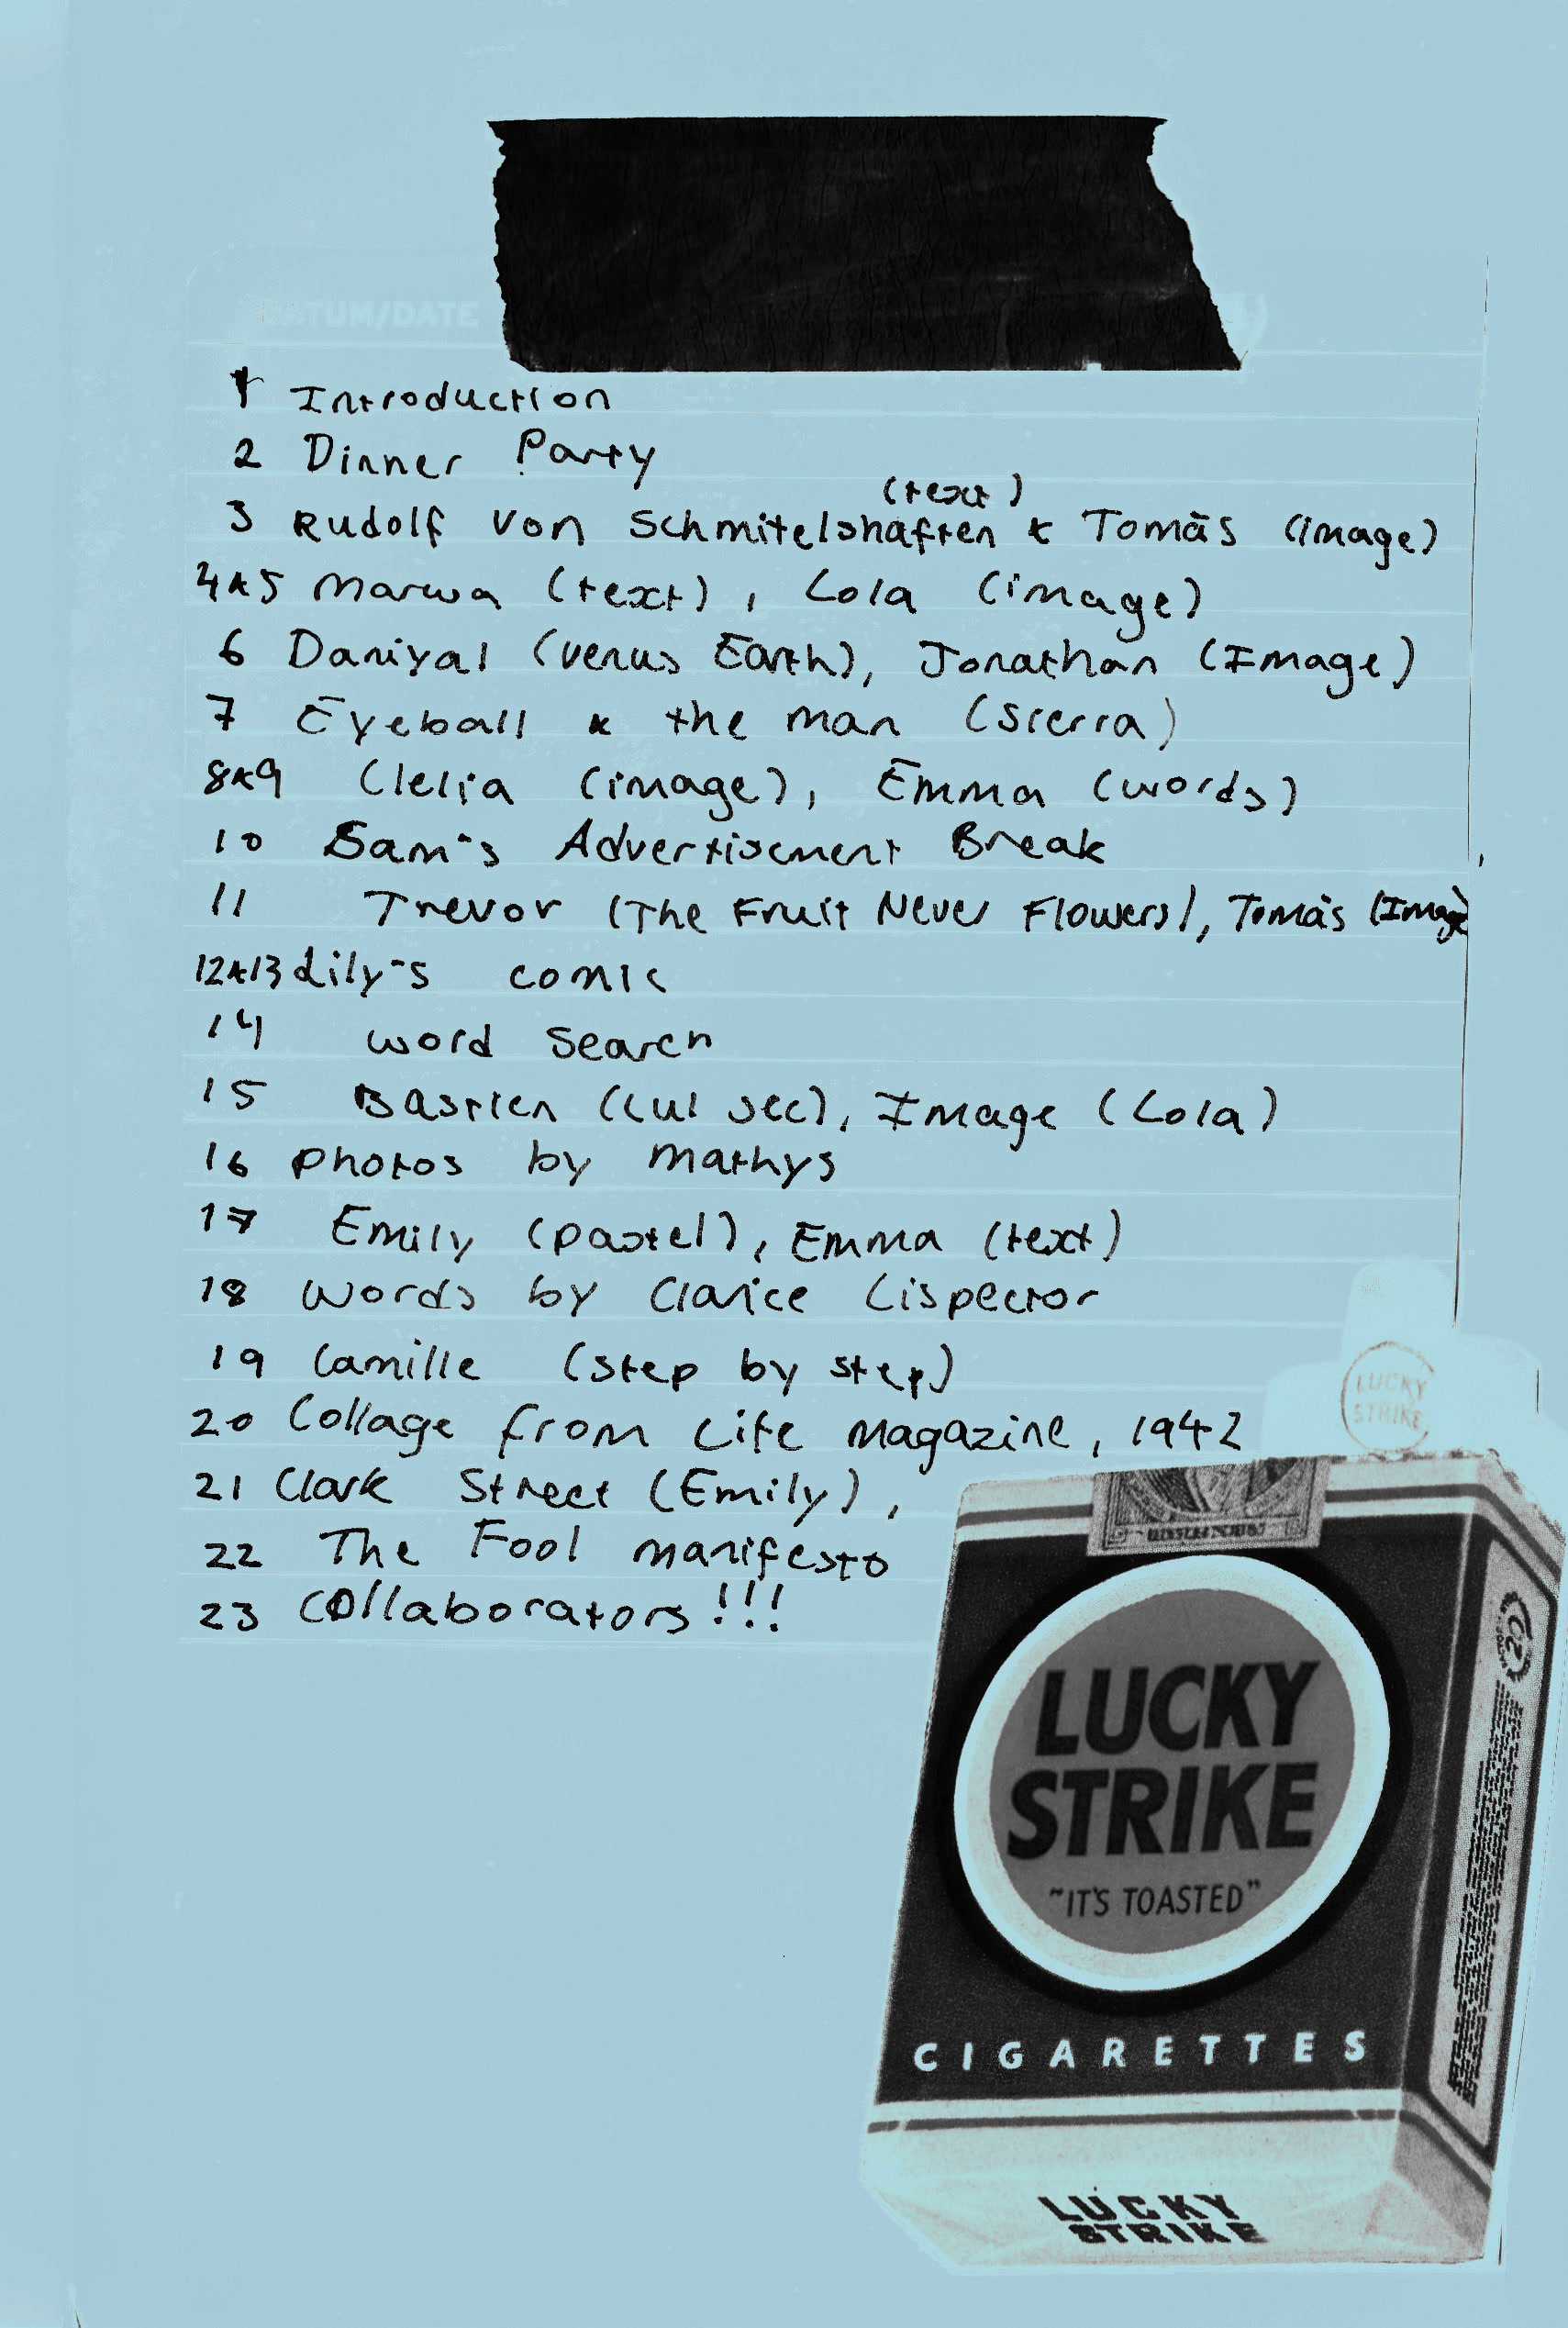 DATUM/DATE
1 Introduction
2 Dinner Party
(text)
3 Rudolf von Schmitelshaften & Tomãs (image)
4&5 Marwa (text), Lola (image)
6 Daniyal (Venus Earth), Jonathan (Image)
7 Eyeball & the man (Sierra)
8&9 Clelia (image), Emma (words)
10 Sam's Advertisement Break
11 Trevor (The Fruit Never Flowers), Tomãs (Image)
12&13 Lily's comic
14 word search
15 Bastien (Cul sec), Image (Lola)
16 photos by Mathys
17 Emily (pastel), Emma (text)
18 words by Clarice Lispector
19 Camille (step by step)
20 Collage from Life Magazine, 1942
21 Clark Street (Emily),
22 The Fool manifesto
23 Collaborators!!!
LUCKY
STRIKE
LUCKY
STRIKE
"IT'S TOASTED"
CIGARETTES
LUCKY
STRIKE